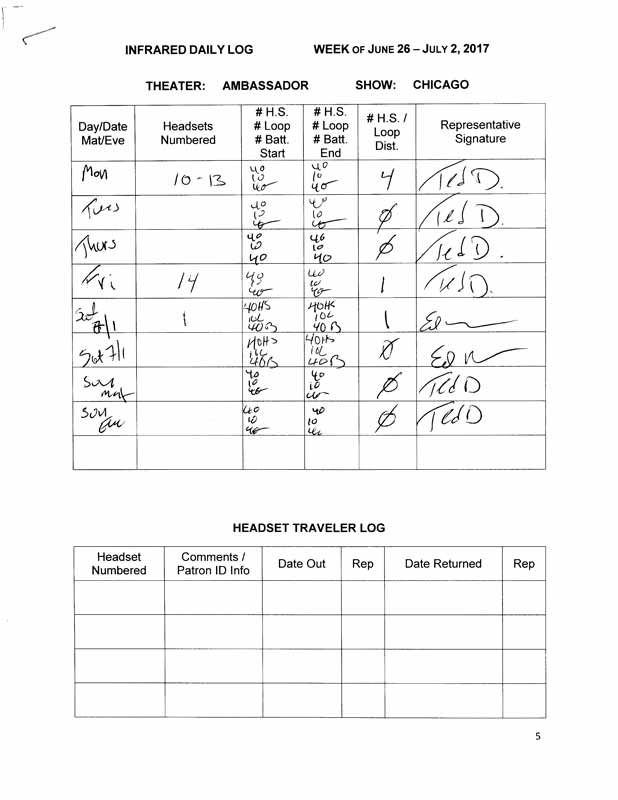 INFRARED DAILY LOG WEEK OF JUNE 26 – JULY 2, 2017
THEATER: AMBASSADOR SHOW: CHICAGO
Day/Date Mat/Eve
Headsets Numbered
# H.S. # Loop # Batt. Start
# H.S. # Loop # Batt. End
# H.S. / Loop Dist.
Representative Signature
Mon 10-13 40 10 40 40 10 40 4 Ted D.
Tues 40 10 40 40 10 40 Ø Ted D.
Thurs 40 10 40 40 10 40 Ø Ted D.
Fri 14 40 10 40 40 10 40 1 Ted D.
Sat 7/1 1 40HS 10L 40B 40HS 10L 40B 1 Ed
Sat 7/1 40HS 10L 40B 40HS 10L 40B Ø Ed
Sun Mat 40 10 40 40 10 40 Ø Ted D
Sun Eve 40 10 40 40 10 40 Ø Ted D
HEADSET TRAVELER LOG
Headset Numbered
Comments / Patron ID Info
Date Out
Rep
Date Returned
Rep
5